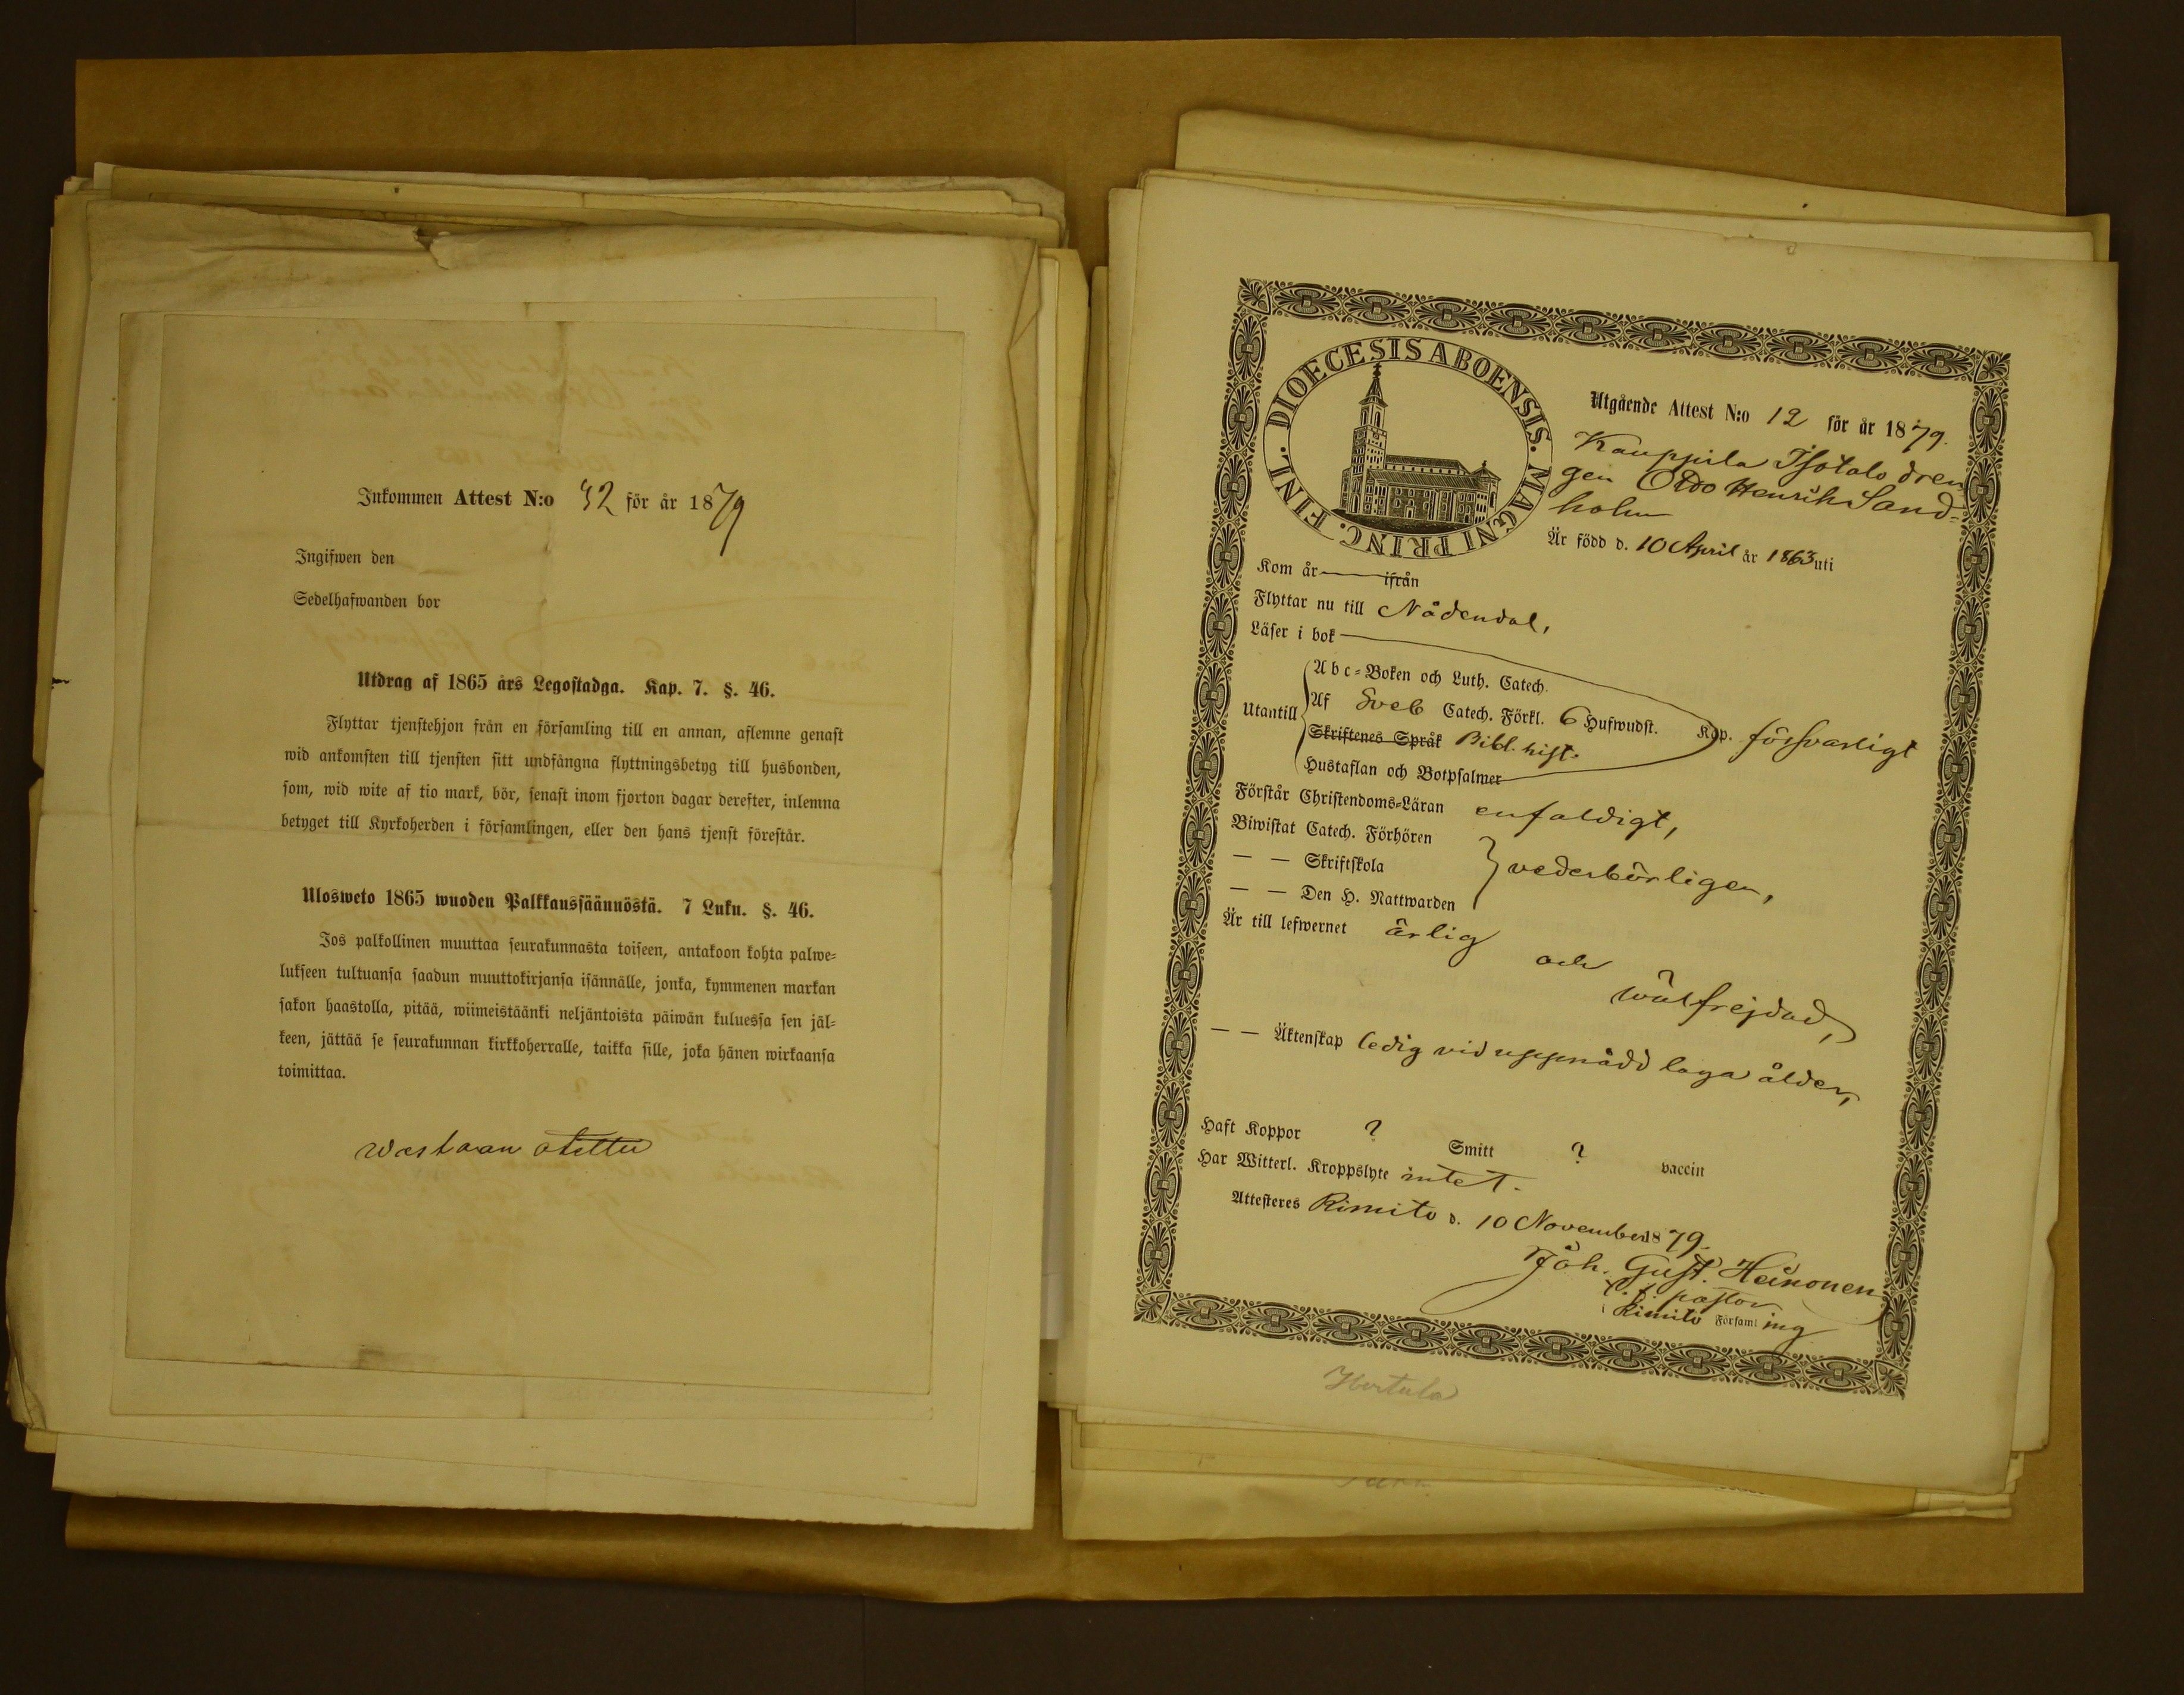 Inkommen Attest N:o 32 för år 1879
Ingifwen den
Sedelhafwanden bor
Utdrag af 1865 års Legostadga. Kap. 7. §. 46.
Flyttar tjenstehjon från en församling till en annan, aflemne genast
wid ankomsten till tjensten sitt undfångna flyttningsbetyg till husbonden,
som, wid wite af tio mark, bör, senast inom fjorton dagar derefter, inlemna
betyget till Kyrkoherden i församlingen, eller den hans tjenst förestår.
Ulosweto 1865 wuoden Palkkaussäännöstä. 7 Luku. §. 46.
Jos palkollinen muuttaa seurakunnasta toiseen, antakoon kohta palwe=
lukseen tultuansa saadun muuttokirjansa isännälle, jonka, kymmenen markan
sakon haastolla, pitää, wiimeistäänki neljäntoista päiwän kuluessa sen jäl=
keen, jättää se seurakunnan kirkkoherralle, taikka sille, joka hänen wirkaansa
toimittaa.
Wastaan otettu
DIOECESIS ABOENSIS. MAGNI PRINC. FINL.
Utgående Attest N:o 12 för år 1879.
Kauppila Isotalo dren
gen Otto Henrik Sand=
holm
Är född d. 10 April år 1863 uti
Kom år ifrån
Flyttar nu till Nådendal,
Läser i bok
Utantill
Abc=Boken och Luth. Catech.
Af Sveb Catech. Förkl. 6 Hufwudst. Kap. försvarligt
Skriftenes Språk Bibl. hist.
Hustaflan och Botpsalmer
Förstår Christendoms=Läran enfaldigt,
Biwistat Catech. Förhören
— — Skriftskola vederbörligen,
— — Den H. Nattwarden
Är till lefwernet ärlig och
wälfrejdad,
— — Äktenskap ledig vid uppnådd laga ålder,
Haft Koppor ? Smitt ? vaccin
Har Witterl. Kroppslyte intet.
Attesteres Rimito d. 10 November 1879.
Joh. Gust. Heinonen
v. pastor
Rimito Församling